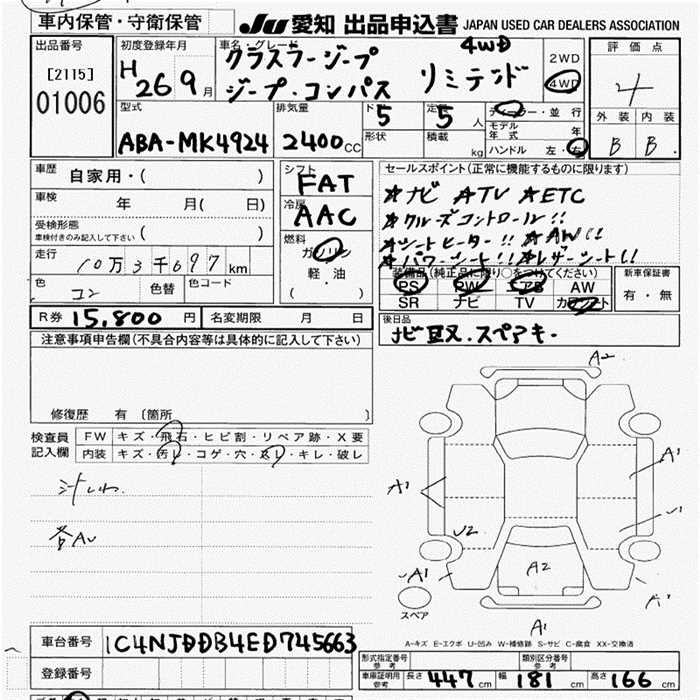 車内保管・守衛保管
JU 愛知 出品申込書 JAPAN USED CAR DEALERS ASSOCIATION
出品番号
[2115]
01006
初度登録年月
H 26 9月
車名・グレード
クラスラージープ 4WD
ジープ・コンパス リミテッド
2WD
4WD
評価点
4
外装 内装
B B
型式
ABA-MK4924
排気量
2400 CC
ド 5
定 5 人
形状
積載 kg
ディーラー・並行
モデル年式 年
ハンドル 左・右
車歴 自家用・( )
車検 年 月( 日)
受検形態 ( )
車検付きのみ記入して下さい
走行 10万3千697km
色 コン 色替 色コード
シフト
FAT
冷房
AAC
燃料
ガソリン
軽・油
( )
セールスポイント(正常に機能するものに限ります)
★ナビ ★TV ★ETC
★クルーズコントロール!!
★シートヒーター!! ★AW!!
★パワーシート!! ★レザーシート!!
装備品(純正品に限り○をつけてください)
PS PW エアB AW
SR ナビ TV カワシート
新車保証書
有・無
R券 15,800円 名変期限 月 日
後日品
ナビ取説.スペアキー
注意事項申告欄(不具合内容等は具体的に記入して下さい)
修復歴 有 〔箇所 〕
検査員記入欄
FW キズ・飛石・ヒビ割・リペア跡・X要
内装 キズ・汚レ・コゲ・穴・スレ・キレ・破レ
A2
A1
A1
U2
A2
A1
A1
スペア
A-キズ E-エクボ U-凹み W-補修跡 S-サビ C-腐食 XX-交換済
車台番号 1C4NJDDB4ED745663
登録番号
形式指定番号 参考
類別区分番号 参考
車庫証明用 参考 長さ 447cm 幅 181cm 高さ 166cm